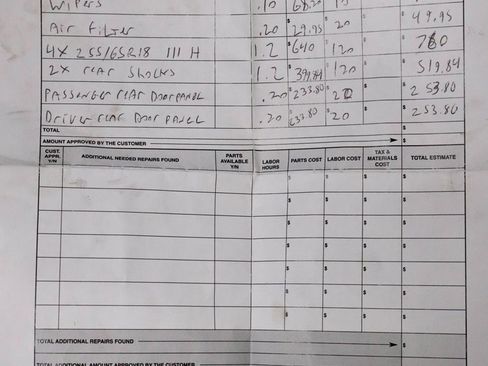 Wipers .10 $ 10
Air Filter .20 $ 29.95 $ 20 $ 49.95
4X 255/65R18 111 H 1.2 $ 640 120 760
2X rear Shocks 1.2 $ 399.84 120 $ 519.84
Passenger rear Door panel .20 $ 233.80 20 $ 253.80
Driver rear Door panel .20 $ 233.80 20 $ 253.80
TOTAL $
AMOUNT APPROVED BY THE CUSTOMER $
CUST. APPR. Y/N ADDITIONAL NEEDED REPAIRS FOUND PARTS AVAILABLE Y/N LABOR HOURS PARTS COST LABOR COST TAX & MATERIALS COST TOTAL ESTIMATE
$ $ $ $
$ $ $ $
$ $ $ $
$ $ $ $
$ $ $ $
$ $ $ $
$ $ $ $
TOTAL ADDITIONAL REPAIRS FOUND $
TOTAL ADDITIONAL AMOUNT APPROVED BY THE CUSTOMER $